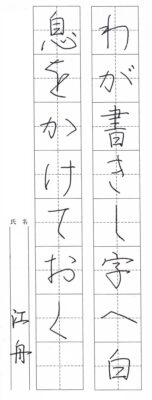 わが書きし字へ白
息をかけておく
氏名
江舟